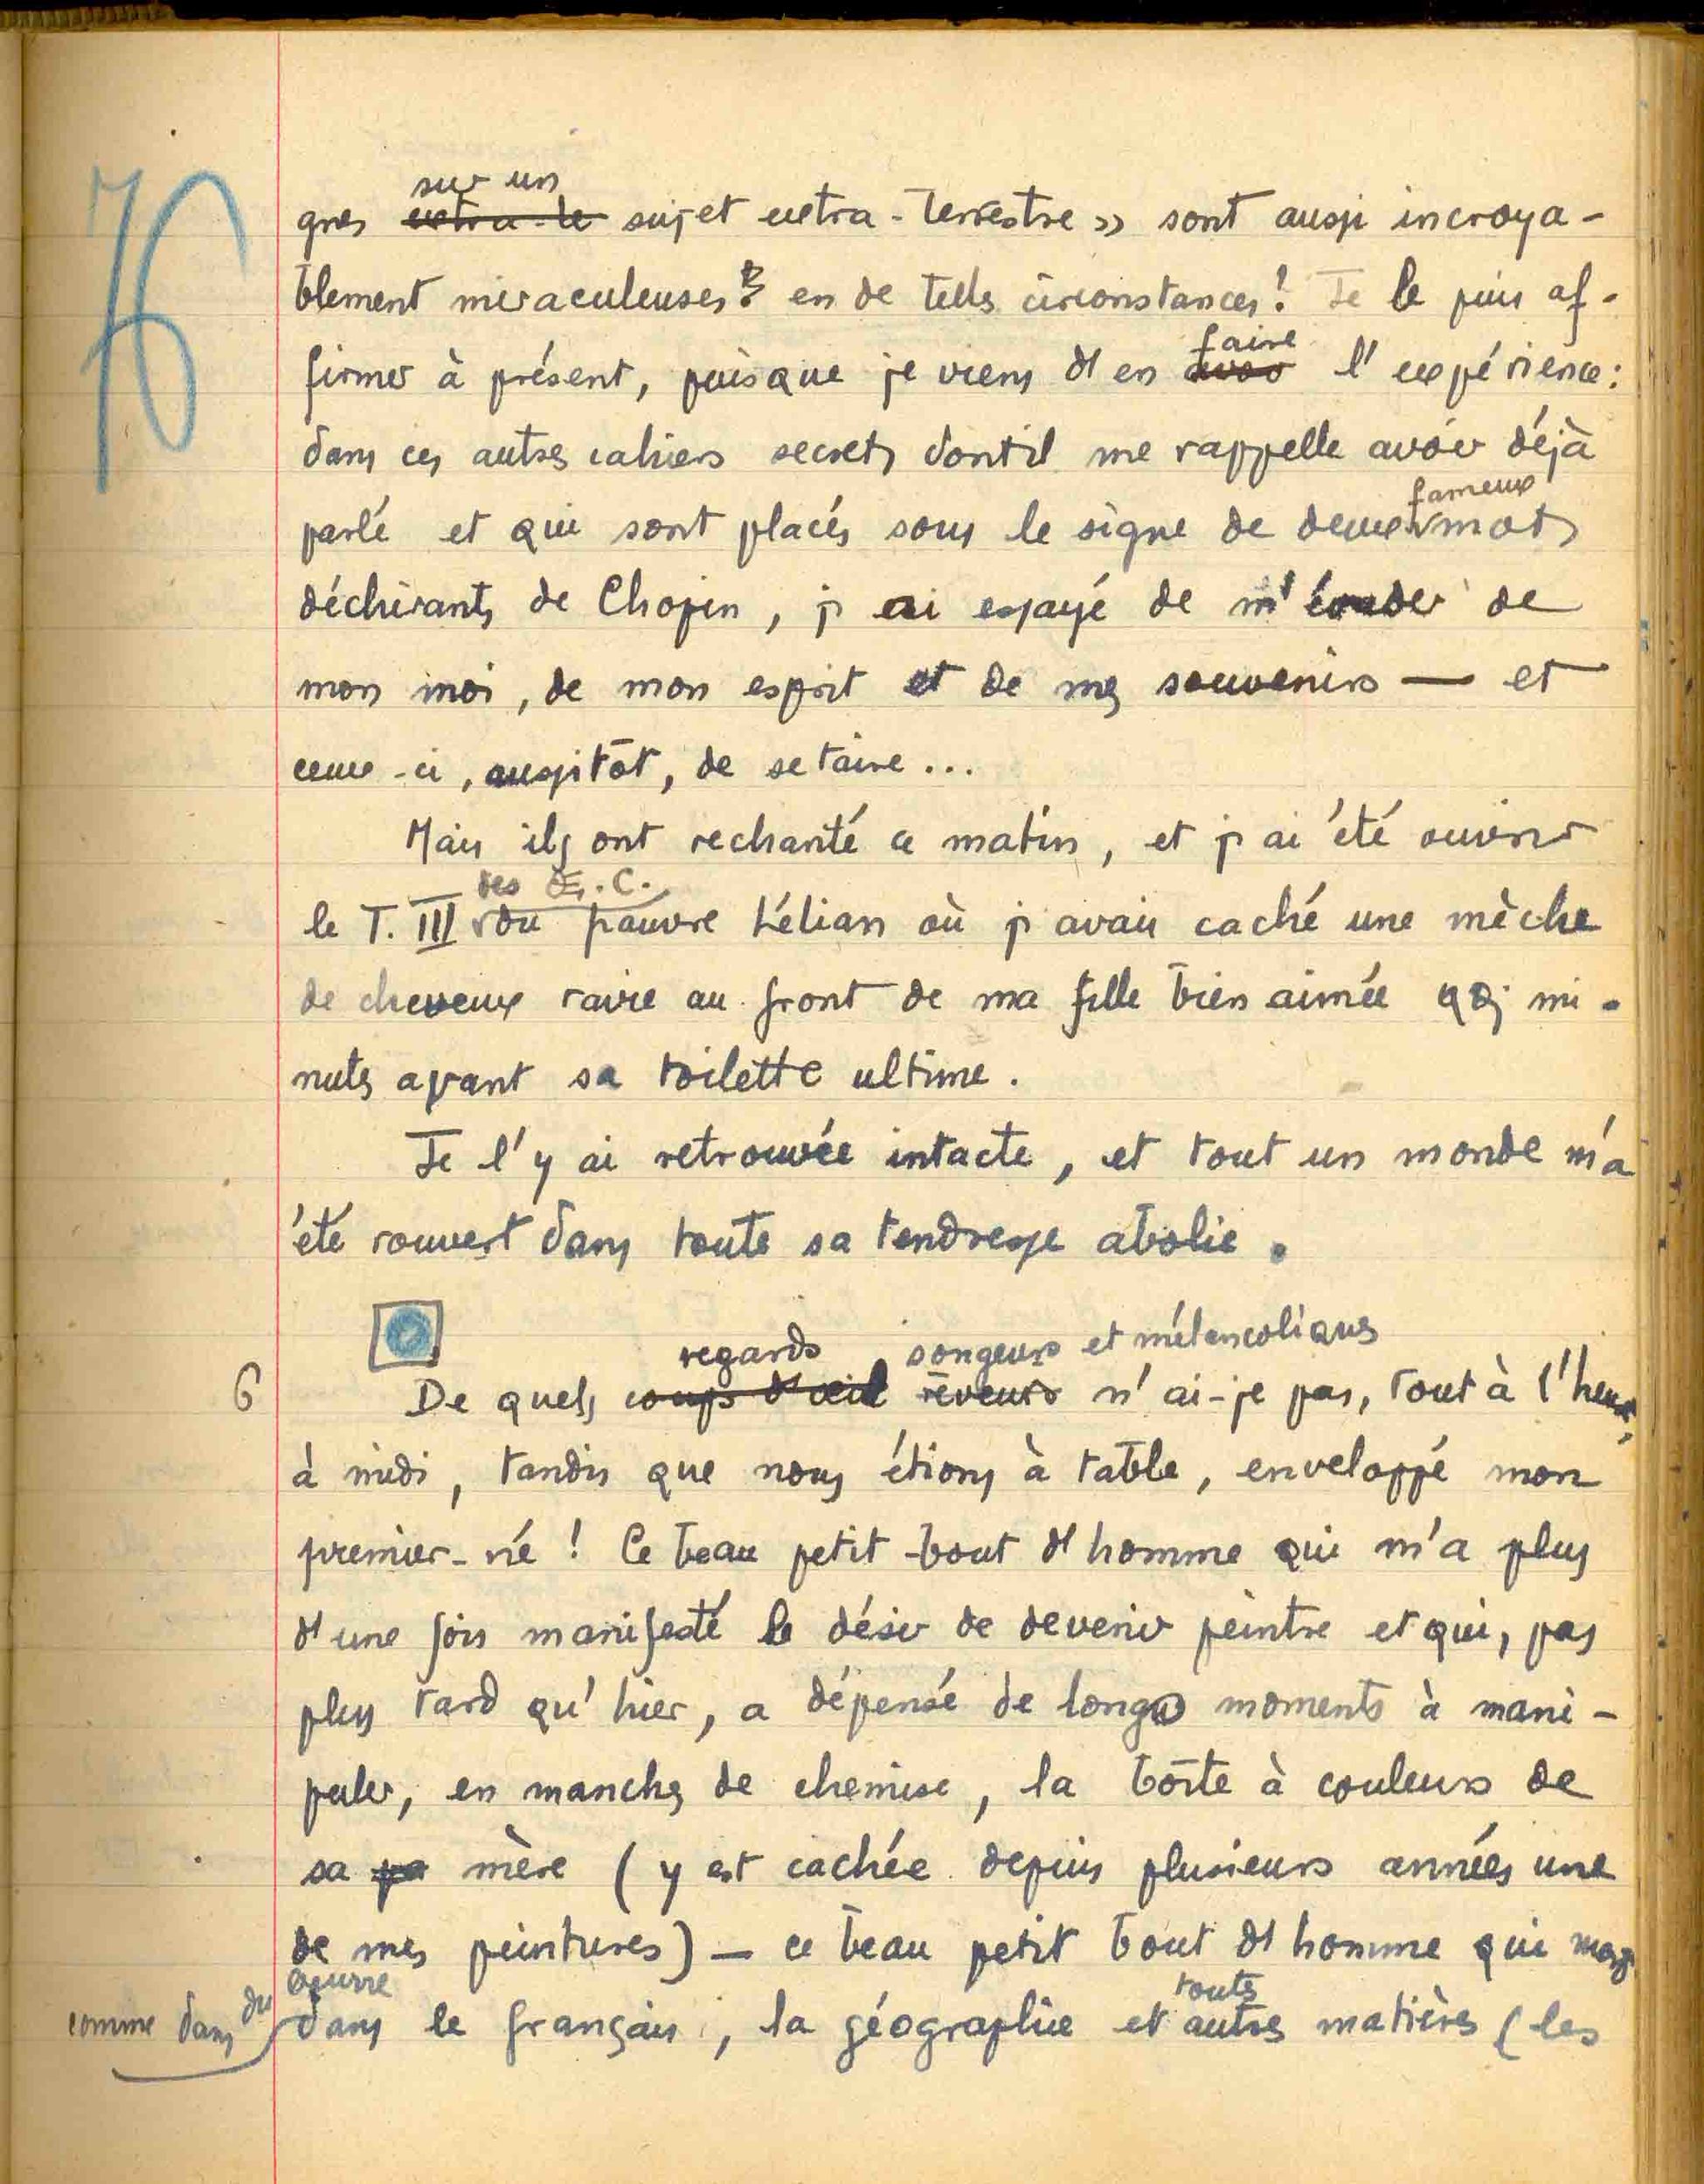 76
sur un
gnes extra-te sujet extra-terrestre » sont aussi incroya-
blement miraculeuses en de telles circonstances! Je le puis af-
faire
firmer à présent, puisque je viens d'en avoir l'expérience:
dans ces autres cahiers secrets dont il me rappelle avoir déjà
fameux
parlé et qui sont placés sous le signe de deux mots
déchirants de Chopin, j'ai essayé de m'évader de
mon moi, de mon esprit et de mes souvenirs — et
ceux-ci, aussitôt, de se taire...
Mais ils ont rechanté ce matin, et j'ai été ouvrir
des Œ. C.
le T. III du pauvre Lélian où j'avais caché une mèche
de cheveux ravie au front de ma fille bien aimée qqs mi-
nutes avant sa toilette ultime.
Je l'y ai retrouvée intacte, et tout un monde m'a
été rouvert dans toute sa tendresse abolie.
regards songeurs et mélancoliques
6 De quels coups d'œil rêveurs n'ai-je pas, tout à l'heure,
à midi, tandis que nous étions à table, enveloppé mon
premier-né ! Ce beau petit bout d'homme qui m'a plus
d'une fois manifesté le désir de devenir peintre et qui, pas
plus tard qu'hier, a dépensé de longs moments à mani-
puler, en manches de chemise, la boîte à couleurs de
sa pa mère (y est cachée depuis plusieurs années une
de mes peintures) — ce beau petit bout d'homme qui
comme dans du beurre toutes
dans le français, la géographie et autres matières (les